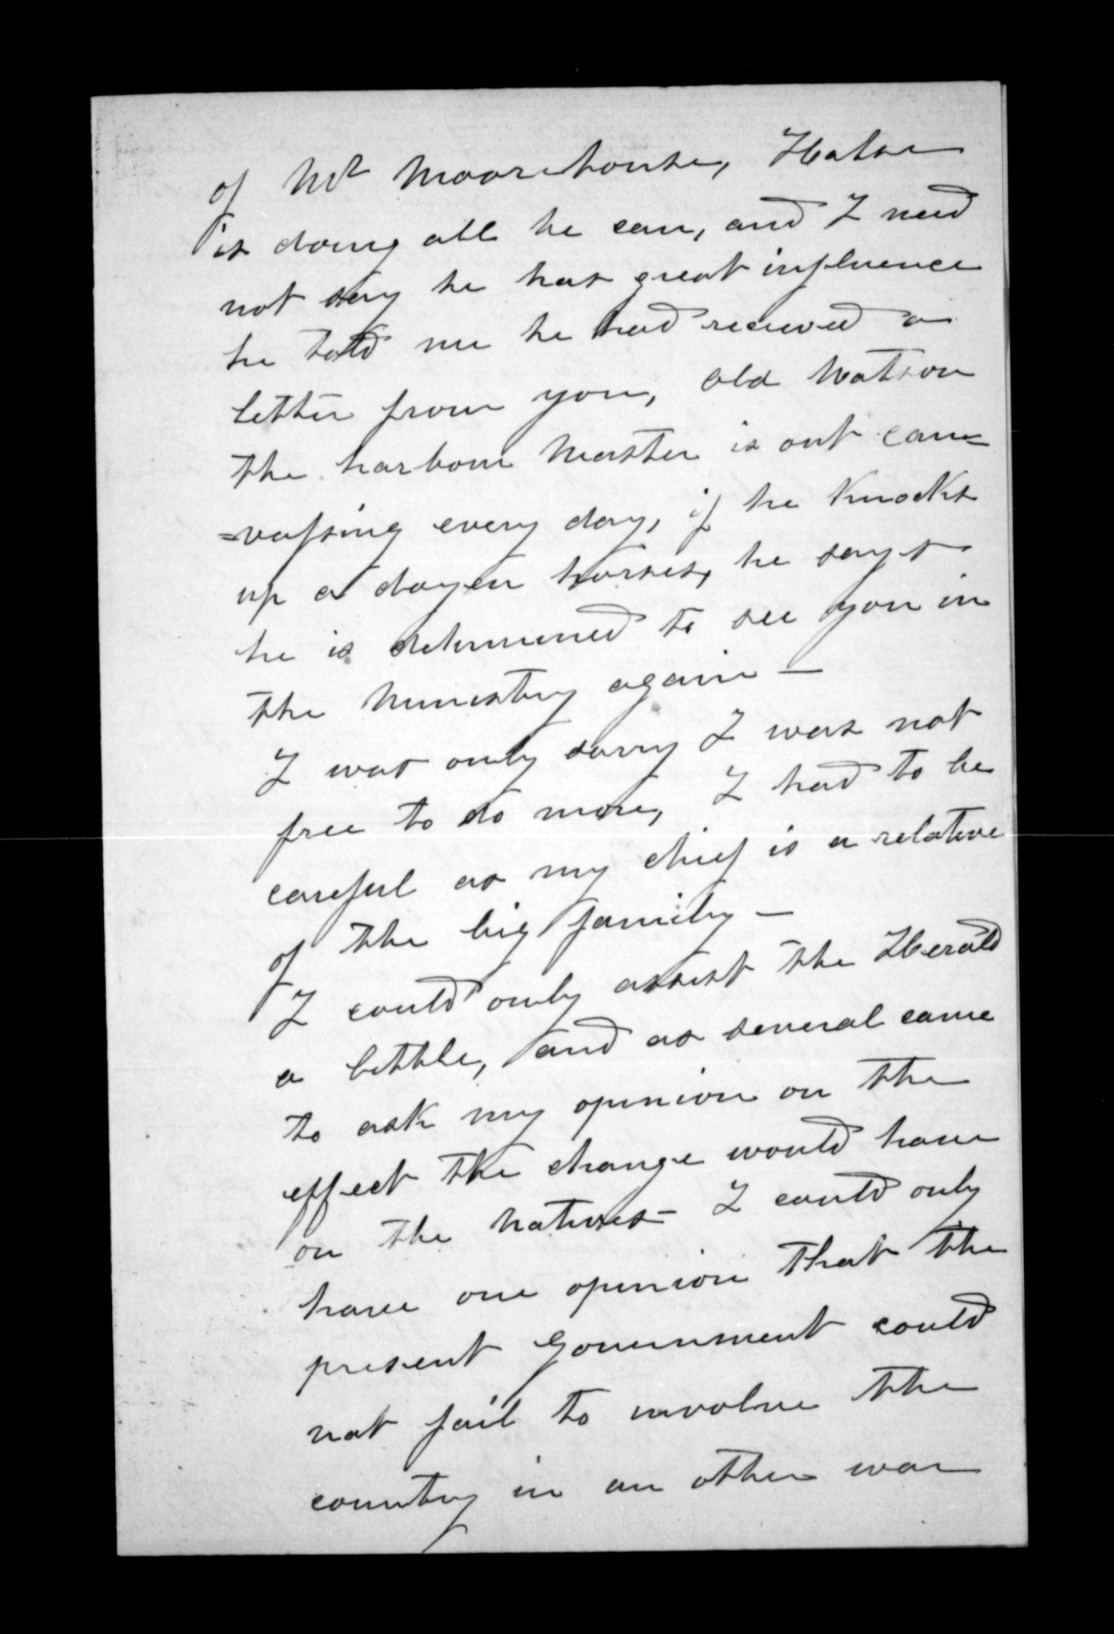 of Mr Moorehouse, Halse
is doing all he can, and I need
not say he has great influence
he told me he had received a
letter from you, old Watson
the harbour Master is out can=
=vassing every day, if he knocks
up a dozen horses, he says
he is determined to see you in
the Ministry again —
I was only sorry I was not
free to do more, I had to be
careful as my chief is a relative
of the big family —
I could only assist the Herald
a little, and as several came
to ask my opinion on the
effect the change would have
on the Natives — I could only
have one opinion that the
present Government could
not fail to involve the
country in an other war